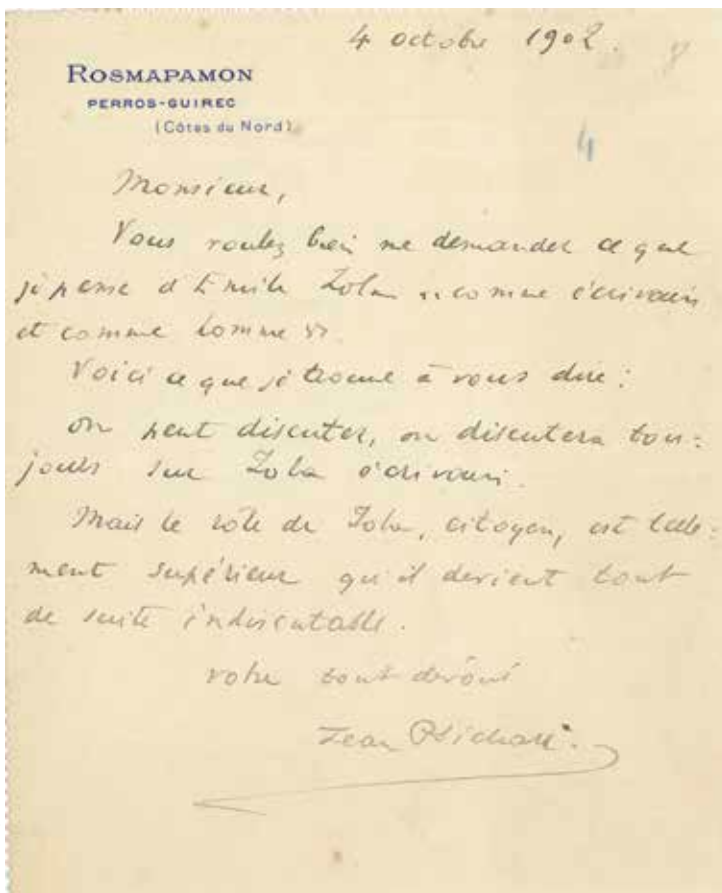 4 octobre 1902.
ROSMAPAMON
PERROS-GUIREC
(Côtes du Nord)
4
Monsieur,
Vous voulez bien me demander ce que
je pense d'Emile Zola « comme écrivain
et comme homme ».
Voici ce que je trouve à vous dire :
on peut discuter, on discutera tou-
jours sur Zola écrivain.
Mais le rôle de Zola, citoyen, est telle-
ment supérieur qu'il devient tout
de suite indiscutable.
votre tout dévoué
Jean Psichari.